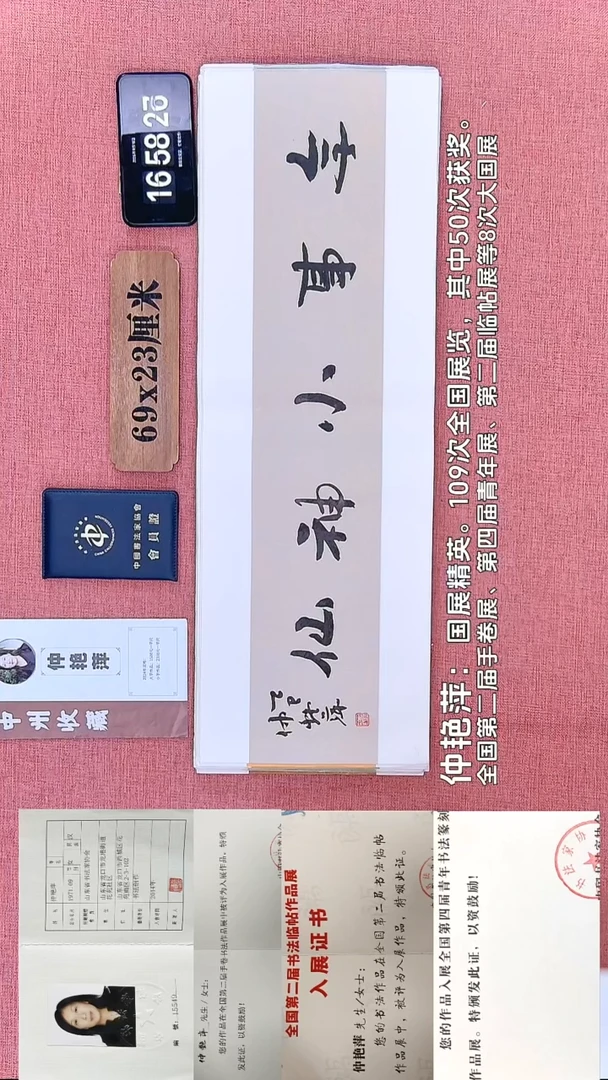 16 58
69x23厘米
中國書法家協會
會員證
仲艳萍
中州收藏
無事小神仙
仲艳萍
仲艳萍：国展精英。109次全国展览，其中50次获奖。
全国第二届手卷展、第四届青年展、第二届临帖展等8次大国展
仲艳萍 先生/女士：
您的作品在全国第二届手卷书法作品展中被评为入展作品，特颁
发此证，以资鼓励！
全国第二届书法临帖作品展
入展证书
仲艳萍 先生/女士：
您的书法作品在全国第二届书法临帖
作品展中，被评为入展作品，特颁此证。
您的作品入展全国第四届青年书法篆刻
作品展。特颁发此证，以资鼓励！